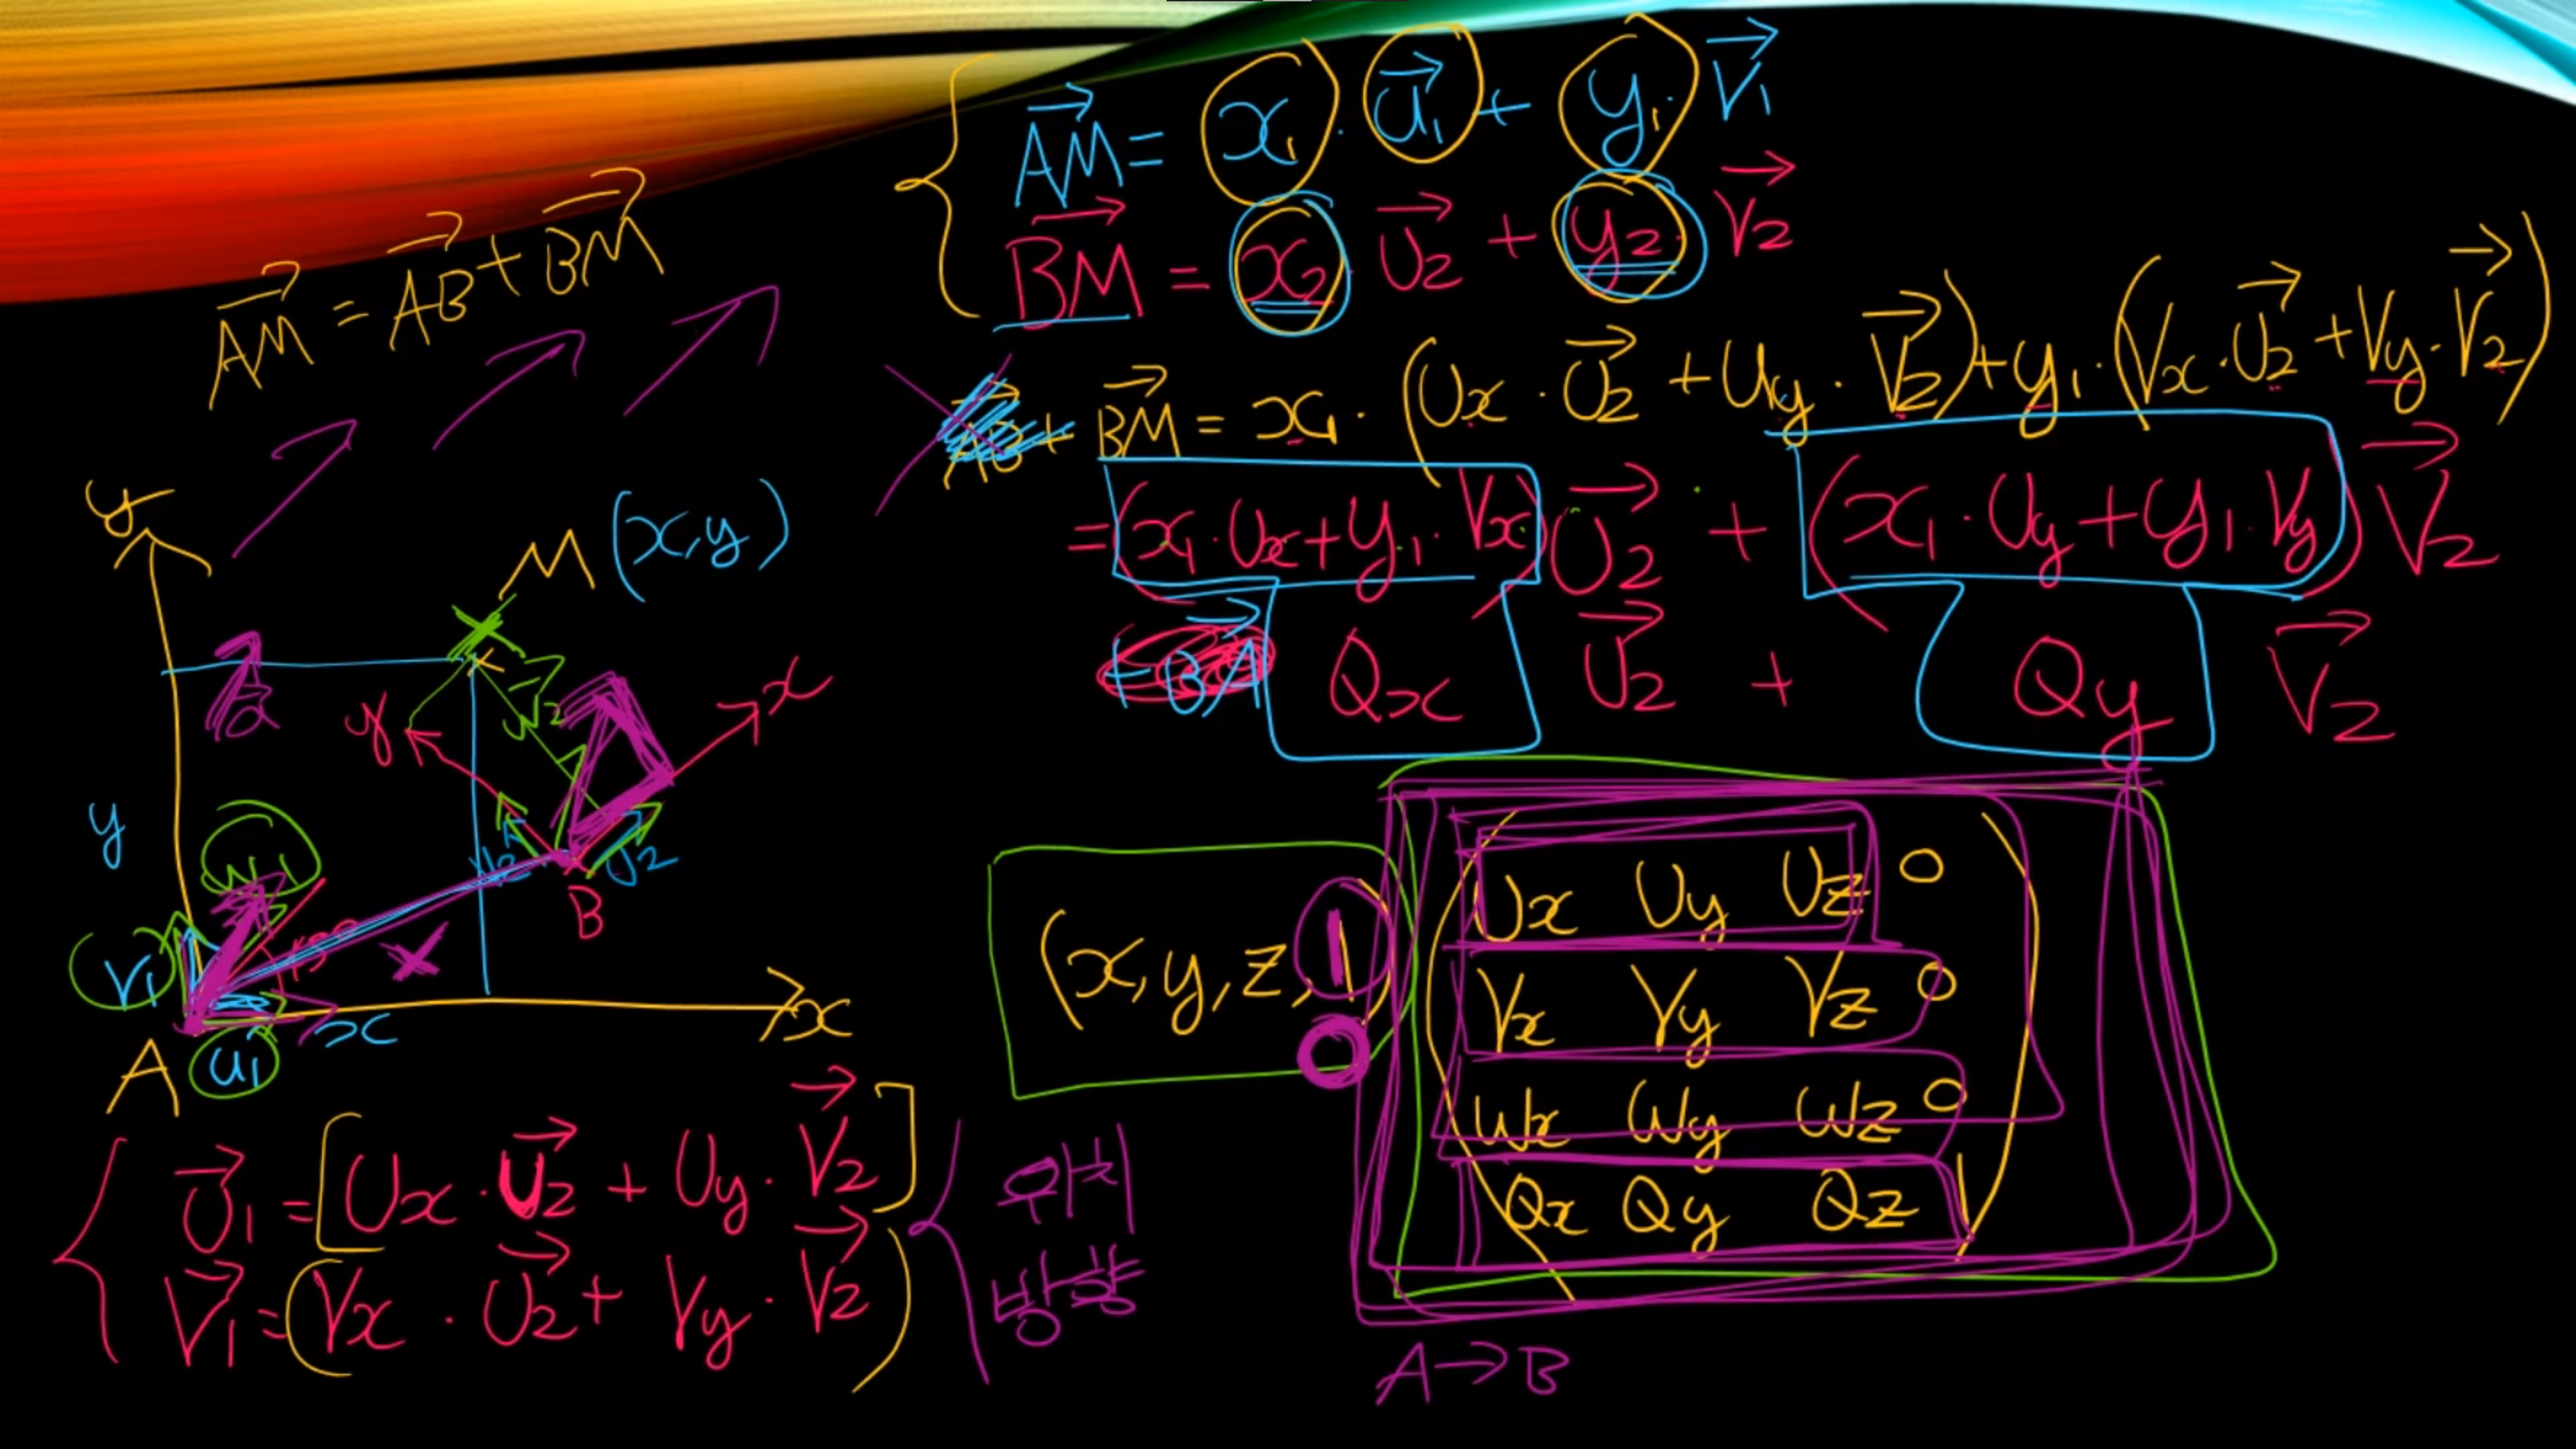 AM = x₁ · u₁ + y₁ · V₁
BM = x₂ · U₂ + y₂ · V₂
AM = AB + BM
BM = x₁ · (Ux · U₂ + Uy · V₂) + y₁ · (Vx · U₂ + Vy · V₂)
= (x₁ · Ux + y₁ · Vx) U₂ + (x₁ · Uy + y₁ · Vy) V₂
Qx U₂ + Qy V₂
y
M (x,y)
x
y
V₂
y
W₁
V₂ U₂
B
V₁
A u₁ x x
(x, y, z, 1)
0
Ux Uy Uz 0
Vx Vy Vz 0
Wx Wy Wz 0
Qx Qy Qz 1
A→B
U₁ = [Ux · U₂ + Uy · V₂]
V₁ = (Vx · U₂ + Vy · V₂)
위치
방향